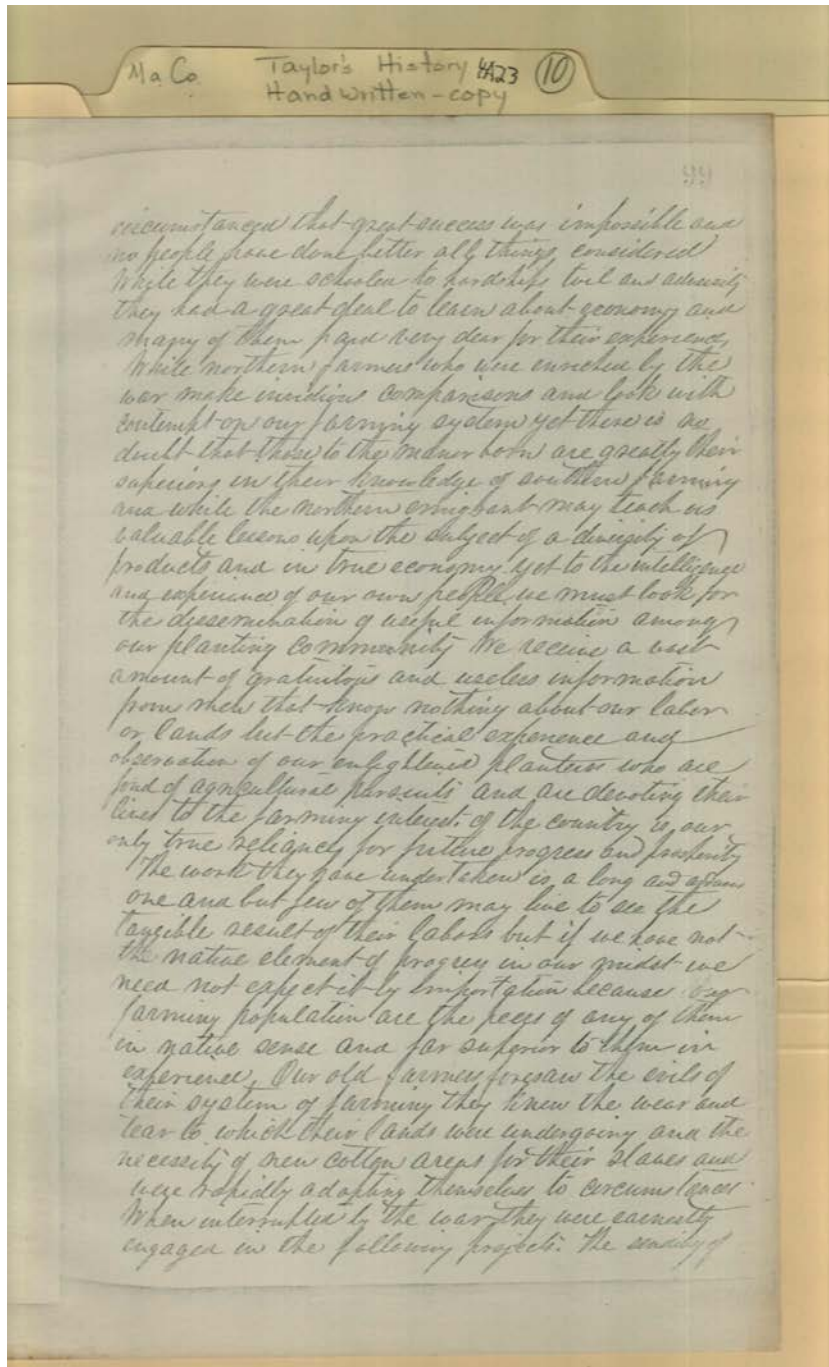 Ma Co. Taylor's History 4A23 10
Handwritten-copy
99
circumstanced that great success was impossible and
no people have done better all things considered
While they were schooled to hardships toil and adversity
they had a great deal to learn about economy and
many of them paid very dear for their experience
While northern farmers who were enriched by the
war make invidious comparisons and look with
contempt on our farming system yet there is no
doubt that those to the manor born are greatly their
superiors in their knowledge of southern farming
and while the northern emigrant may teach us
valuable lessons upon the subject of a diversity of
products and in true economy yet to the intelligence
and experience of our own people we must look for
the dissemination of useful information among
our planting community We receive a vast
amount of gratuitous and useless information
from men that know nothing about our labor
or lands but the practical experience and
observation of our enlightened planters who are
fond of agricultural pursuits and are devoting their
lives to the farming interest of the country is our
only true reliance for future progress and prosperity
The work they have undertaken is a long and
one and but few of them may live to see the
tangible result of their labors but if we have not
the native element of progress in our midst we
need not expect it by importation because our
farming population are the peers of any of them
in native sense and far superior to them in
experience. Our old farmers foresaw the evils of
their system of farming they knew the wear and
tear to which their lands were undergoing and the
necessity of new cotton areas for their slaves and
were rapidly adapting themselves to circumstances
When interrupted by the war they were earnestly
engaged in the following projects. The sending of